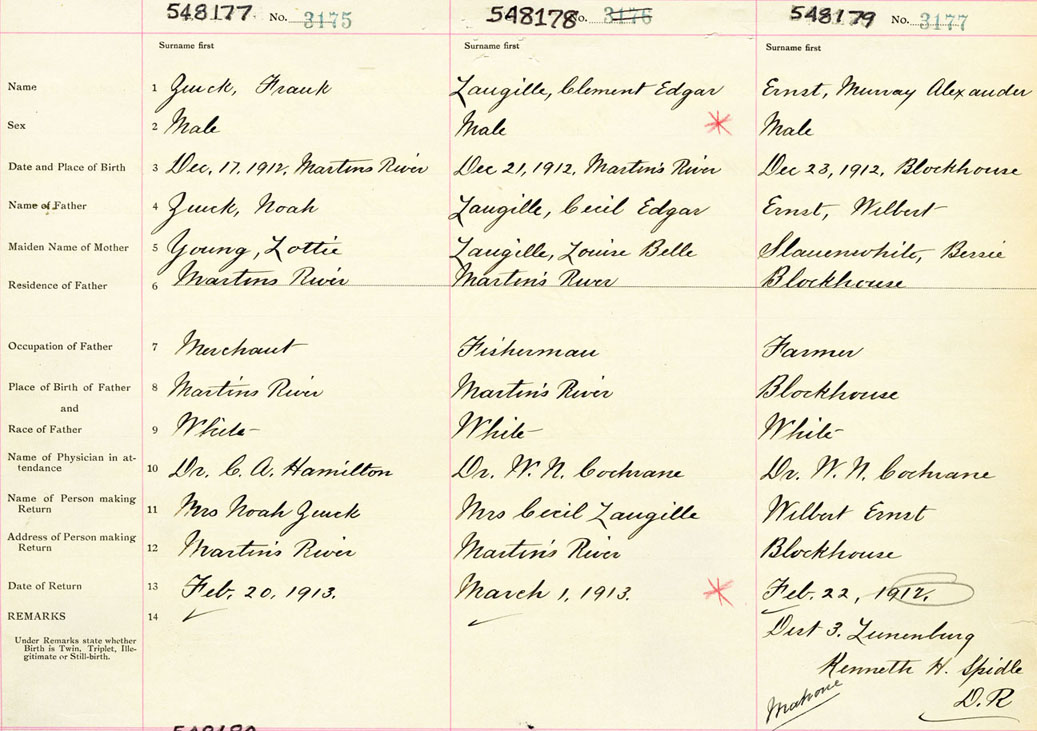 548177 No. 3175 548178 No. 3176 548179 No. 3177
Surname first Surname first Surname first
Name 1 Zinck, Frank Langille, Clement Edgar Ernst, Murray Alexander
Sex 2 Male Male Male
Date and Place of Birth 3 Dec. 17, 1912, Martins River Dec 21, 1912, Martin's River Dec 23, 1912, Blockhouse
Name of Father 4 Zinck, Noah Langille, Cecil Edgar Ernst, Wilbert
Maiden Name of Mother 5 Young, Lottie Langille, Louise Belle Slauenwhite, Bessie
Residence of Father 6 Martins River Martin's River Blockhouse
Occupation of Father 7 Merchant Fisherman Farmer
Place of Birth of Father 8 Martins River Martin's River Blockhouse
and
Race of Father 9 White White White
Name of Physician in at-
tendance 10 Dr. C. A. Hamilton Dr. W. N. Cochrane Dr. W. N. Cochrane
Name of Person making
Return 11 Mrs Noah Zinck Mrs Cecil Langille Wilbert Ernst
Address of Person making
Return 12 Martin's River Martin's River Blockhouse
Date of Return 13 Feb. 20, 1913. March 1, 1913. Feb. 22, 1912.
REMARKS 14
Under Remarks state whether
Birth is Twin, Triplet, Ille-
gitimate or Still-birth.
Dist 3. Lunenburg
Kenneth H. Spidle
D. R
Mahone